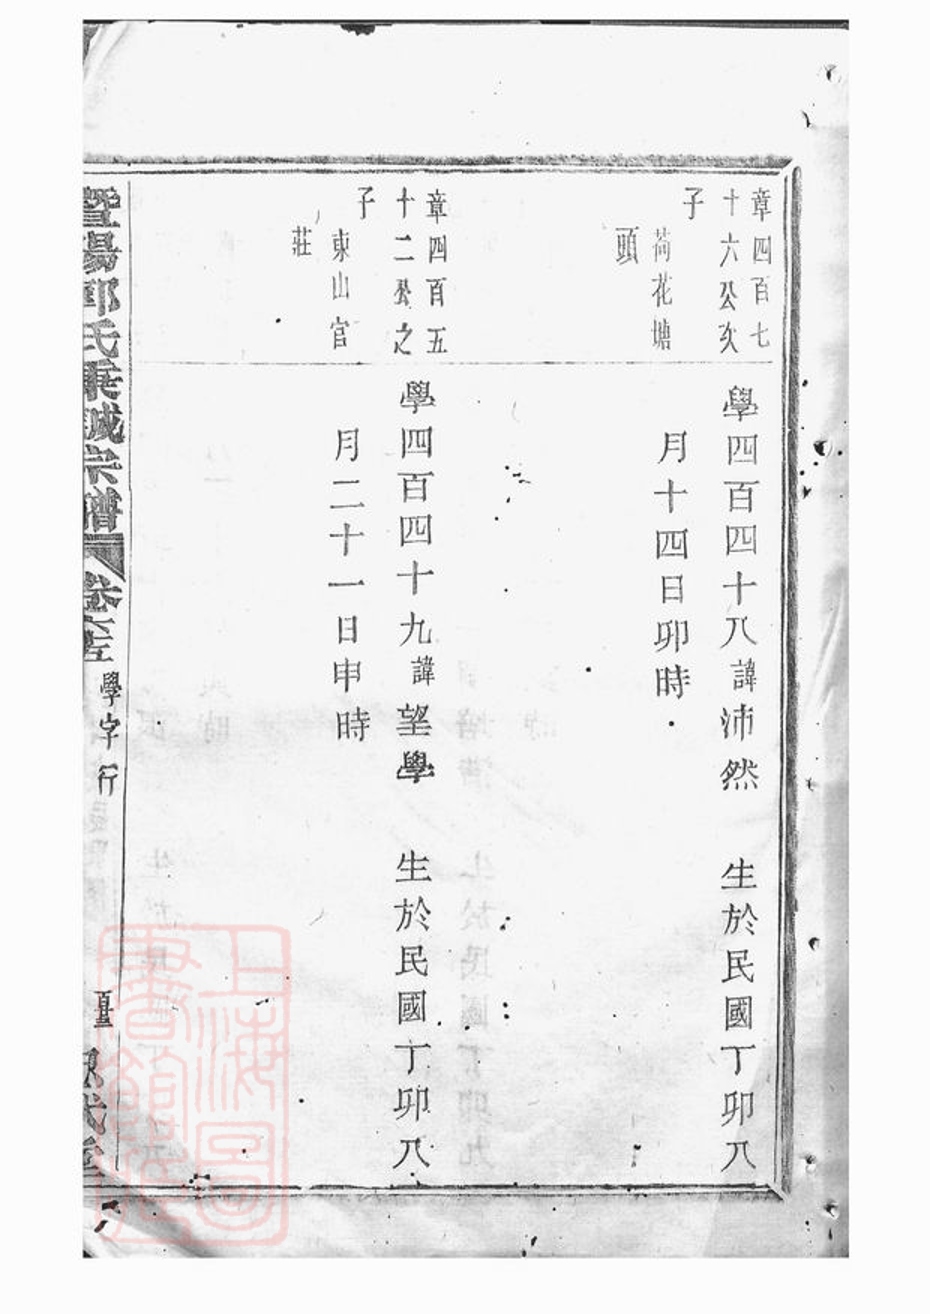 章四百七
十六公次
子
荷花塘
頭
學四百四十八諱沛然 生於民國丁卯八
月十四日卯時
章四百五
十二公之
子
東山官
莊
學四百四十九諱望學 生於民國丁卯八
月二十一日申時
暨陽郭氏秉誠宗譜 卷 學字行
上海圖書館藏